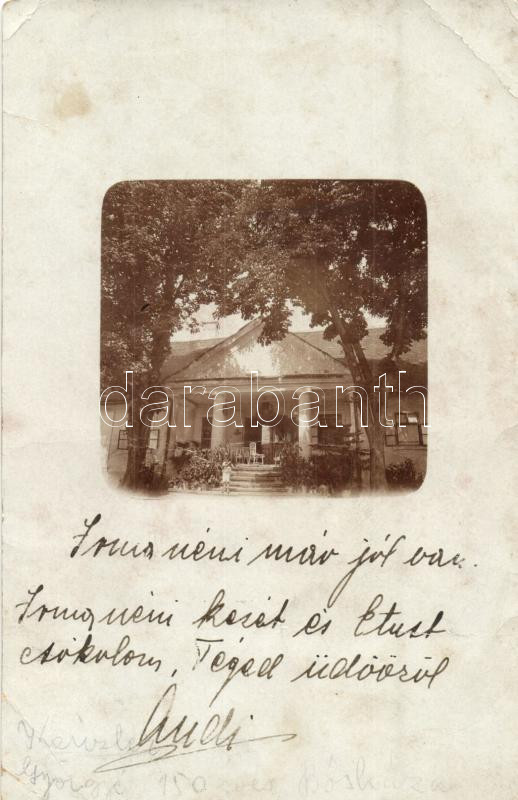 darabanth
Irma néni már jól van.
Irma néni kezét és Etust
csókolom, Téged üdvözöl
Andi
György 150 éves